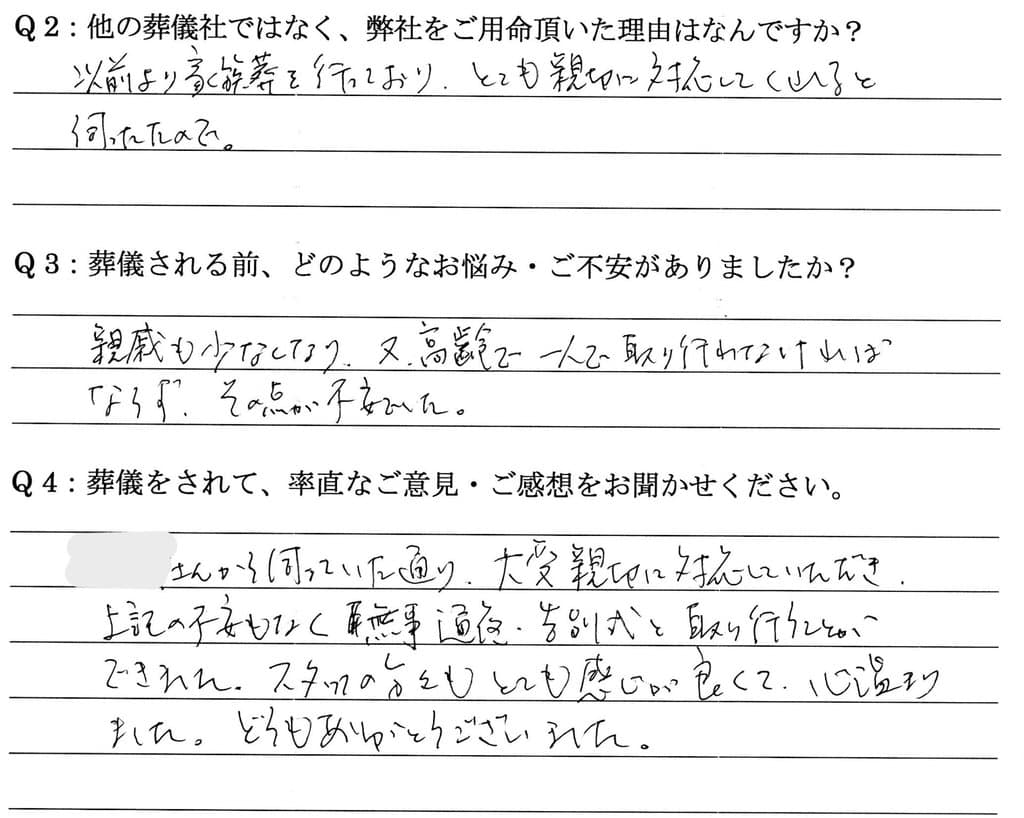 Q2:他の葬儀社ではなく、弊社をご用命頂いた理由はなんですか?
以前より家族葬を行っており、とても親切に対応してくれると
伺ったたので。
Q3:葬儀される前、どのようなお悩み・ご不安がありましたか?
親戚も少なくなり、又、高齢で一人で取り行わなければ
ならず、その点が不安でした。
Q4:葬儀をされて、率直なご意見・ご感想をお聞かせください。
さんから伺っていた通り、大変親切に対応していただき、
上記の不安もなく無事通夜・告別式と取り行うことが
できました。スタッフの方々もとても感じが良くて、心温まり
ました。どうもありがとうございました。